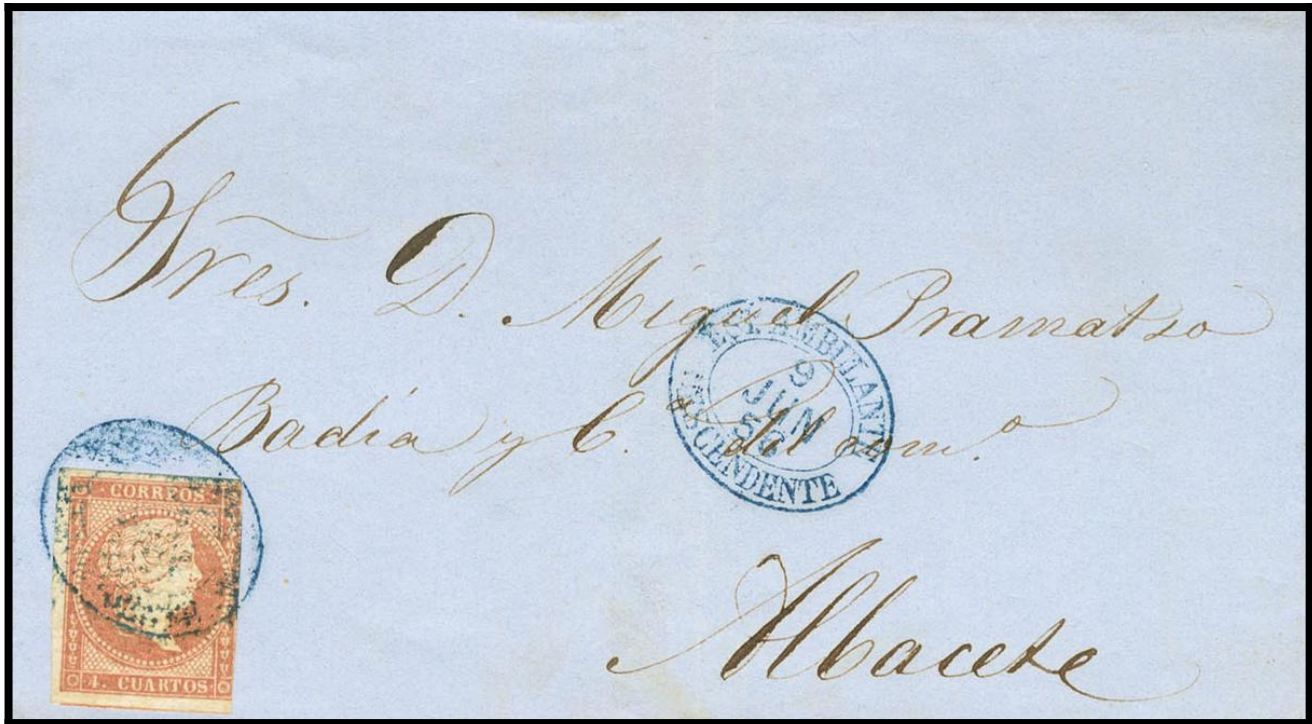 Sres. D. Miguel Pramatso
Badía y C. del com.º
Albacete
EST. AMBULANTE
9
JUN
56
DESCENDENTE
CORREOS
4. CUARTOS